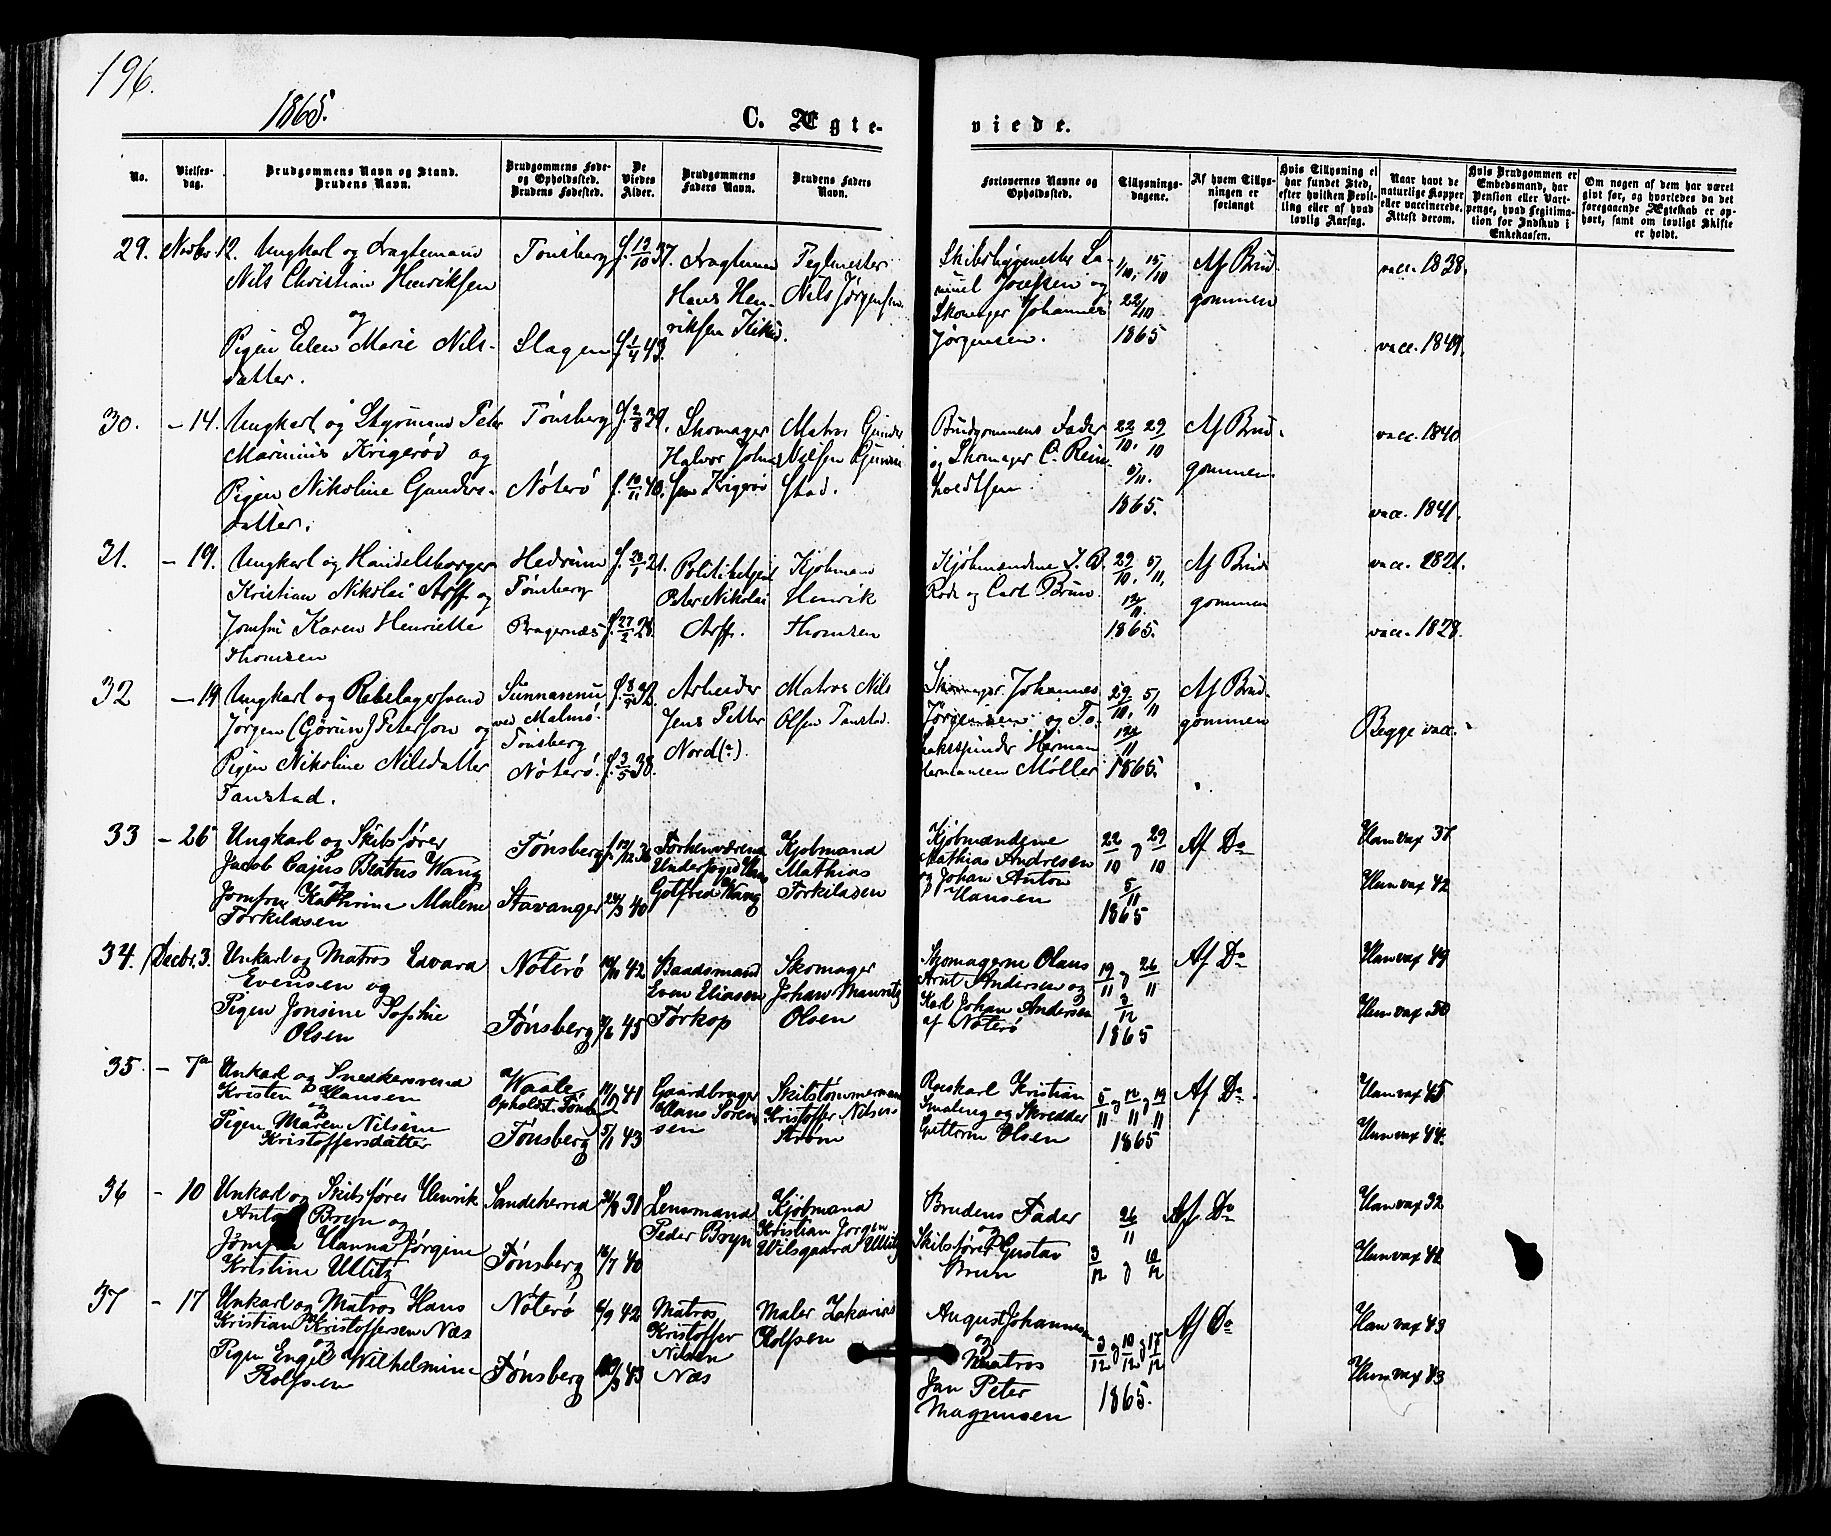 196.
1865.
C. Ægte-
viede.
No.
Vielses-
dag.
Brudgommens Navn og Stand.
Brudens Navn.
Brudgommens Føde-
og Opholdssted.
Brudens Fødested.
De
Viedes
Alder.
Brudgommens
Faders Navn.
Brudens Faders
Navn.
Forlovernes Navne og
Opholdssted.
Tillysnings-
dagene.
Af hvem Tillys-
ningen er
forlangt
Hvis Tillysning ei
har fundet Sted,
efter hvilken Bevil-
ling eller af hvad
lovlig Aarsag.
Naar havt de
naturlige Kopper
eller vaccinerede.
Attest derom.
Hvis Brudgommen er
Embedsmand, har
Pension eller Vart-
penge, hvad Legitima-
tion for Indskud i
Enkekassen.
Om nogen af dem har været
gift før, og hvorledes da det
foregaaende Ægteskab er op-
hørt, samt om lovligt Skifte
er holdt.
29. Novbr. 12.
Ungkarl og Dragtemand
Nils Christian Henriksen
og
Pigen Elen Marie Nils-
datter.
Tønsberg
Slagen
f. 13/10 37.
f. 1/4 43.
Hans Hen-
riksen
Teglmester
Nils Jørgensen.
Skibsbygmester Sa-
muel Josefsen og
Skomager Johannes
Jørgensen.
1/10, 15/10
22/10
1865
Af Brud-
gommen
vacc. 1838.
vacc. 1849.
30. – 14.
Ungkarl og Styrmand Peter
Marinius Krigerød og
Pigen Nikoline Gunders-
datter.
Tønsberg
Nøterø
f. 2/8 39.
f. 10/11 40.
Skomager
Halvor Johne-
sen Krigerød
Matros Gunder
Nilsen
stad.
Brudgommens Fader
og Skomager C. Rein-
holdtsen
22/10, 29/10
5/11.
1865.
Af Brud-
gommen.
vacc. 1840
vacc. 1841.
31. – 19.
Ungkarl og Handelsborger
Kristian Nikolai Arff og
Jomfru Karen Henriette
Thomsen
Hedrum
Tønsberg
Bragernæs
f. 27/2 28.
Politibetjent
Peter Nikolai
Arff.
Kjøbmand
Henrik
Thomsen
Kjøbmændene J. B.
Rode og Carl Bruun.
29/10, 5/11,
12/11
1865.
Af Brud-
gommen
vacc. 1821.
vacc. 1828.
32 – 19
Ungkarl og Rebslagersvend
Jørgen (Gørun) Peterson og
Pigen Nikoline Nilsdatter
Tanstad.
ved Malmø.
Tønsberg
Nøterø.
f. 3/5 38.
Arbeider
Jens Petter
Nord(?).
Matros Nils
Olsen Tanstad.
Skomager Johannes
Jørgensen og To-
baksspinder Herman
Hermansen Møller
29/10, 5/11
12/11
1865.
Af Brud-
gommen
Begge vacc.
33 – 26
Ungkarl og Skibsfører
Jacob Cajus Beatus Wang
og
Jomfru Kathrine Malene
Torkildsen
Tønsberg
Stavanger
40
Forhenværende
Underfoged Hans
Gotfred Wang
Kjøbmand
Mathias
Torkildsen
Kjøbmændene
Mathias Andresen
og Johan Anton
Hansen
22/10 og 29/10
5/11
1865
Af Do
Han vax 37
Hun vax 42
34. Decbr. 3.
Unkarl og Matros Edvard
Evensen og
Pigen Jonsine Sophie
Olsen
Nøterø
Tønsberg
42
45
Baadsmand
Even Eliasen
Torkop
Skomager
Johan Mauritz
Olsen
Skomagerne Olaus
Arnt Andersen og
Karl Johan Andersen
af Nøterø
19/11 og 26/11
3/12
1865
Af Do
Han vax 49
Hun vax 50
35. – 7de
Unkarl og Snedkersvend
Kristen Hansen
og
Pigen Maren Nilsine
Kristoffersdatter
Waale
Opholdst. Tønsb.
Tønsberg
41
5/1 43
Gaardbruger
Hans Soren-
sen
Skibstømmermand
Kristoffer Nilsen
Strøm
Roeskarl Kristian
Smaleng og Skredder
Guttorm Olsen
5/11 og 12/11 og 19/11
1865
Af Do
Han vax 45
Hun vax 44.
36 – 10
Unkarl og Skibsfører Henrik
Anton Bryn og
Jomfru Hanna Jørgine
Kristine Ullitz
Sandeherred
Tønsberg
31
16/7 40
Lensmand
Peder Bryn
Kjøbmand
Kristian Jørgen
Wilsgaard Ullitz
Brudens Fader
og
Skibsfører Gustav
Brun
26/11
3/12 og 10/12
Af Do
Han vax 32
Hun vax 42
37 – 17
Unkarl og Matros Hans
Kristian Kristoffersen Næs
og
Pigen Engel Wilhelmine
Rolfsen
Nøterø
Tønsberg
6/9 42
43
Matros
Kristoffer
Nilsen
Næs
Maler Zakarias
Rolfsen
August Johannesen
og
Matros
Jan Peter
Magnusen
3/12 og 10/12 og 17/12
1865.
Af Do
Han vax 43
Hun vax 43